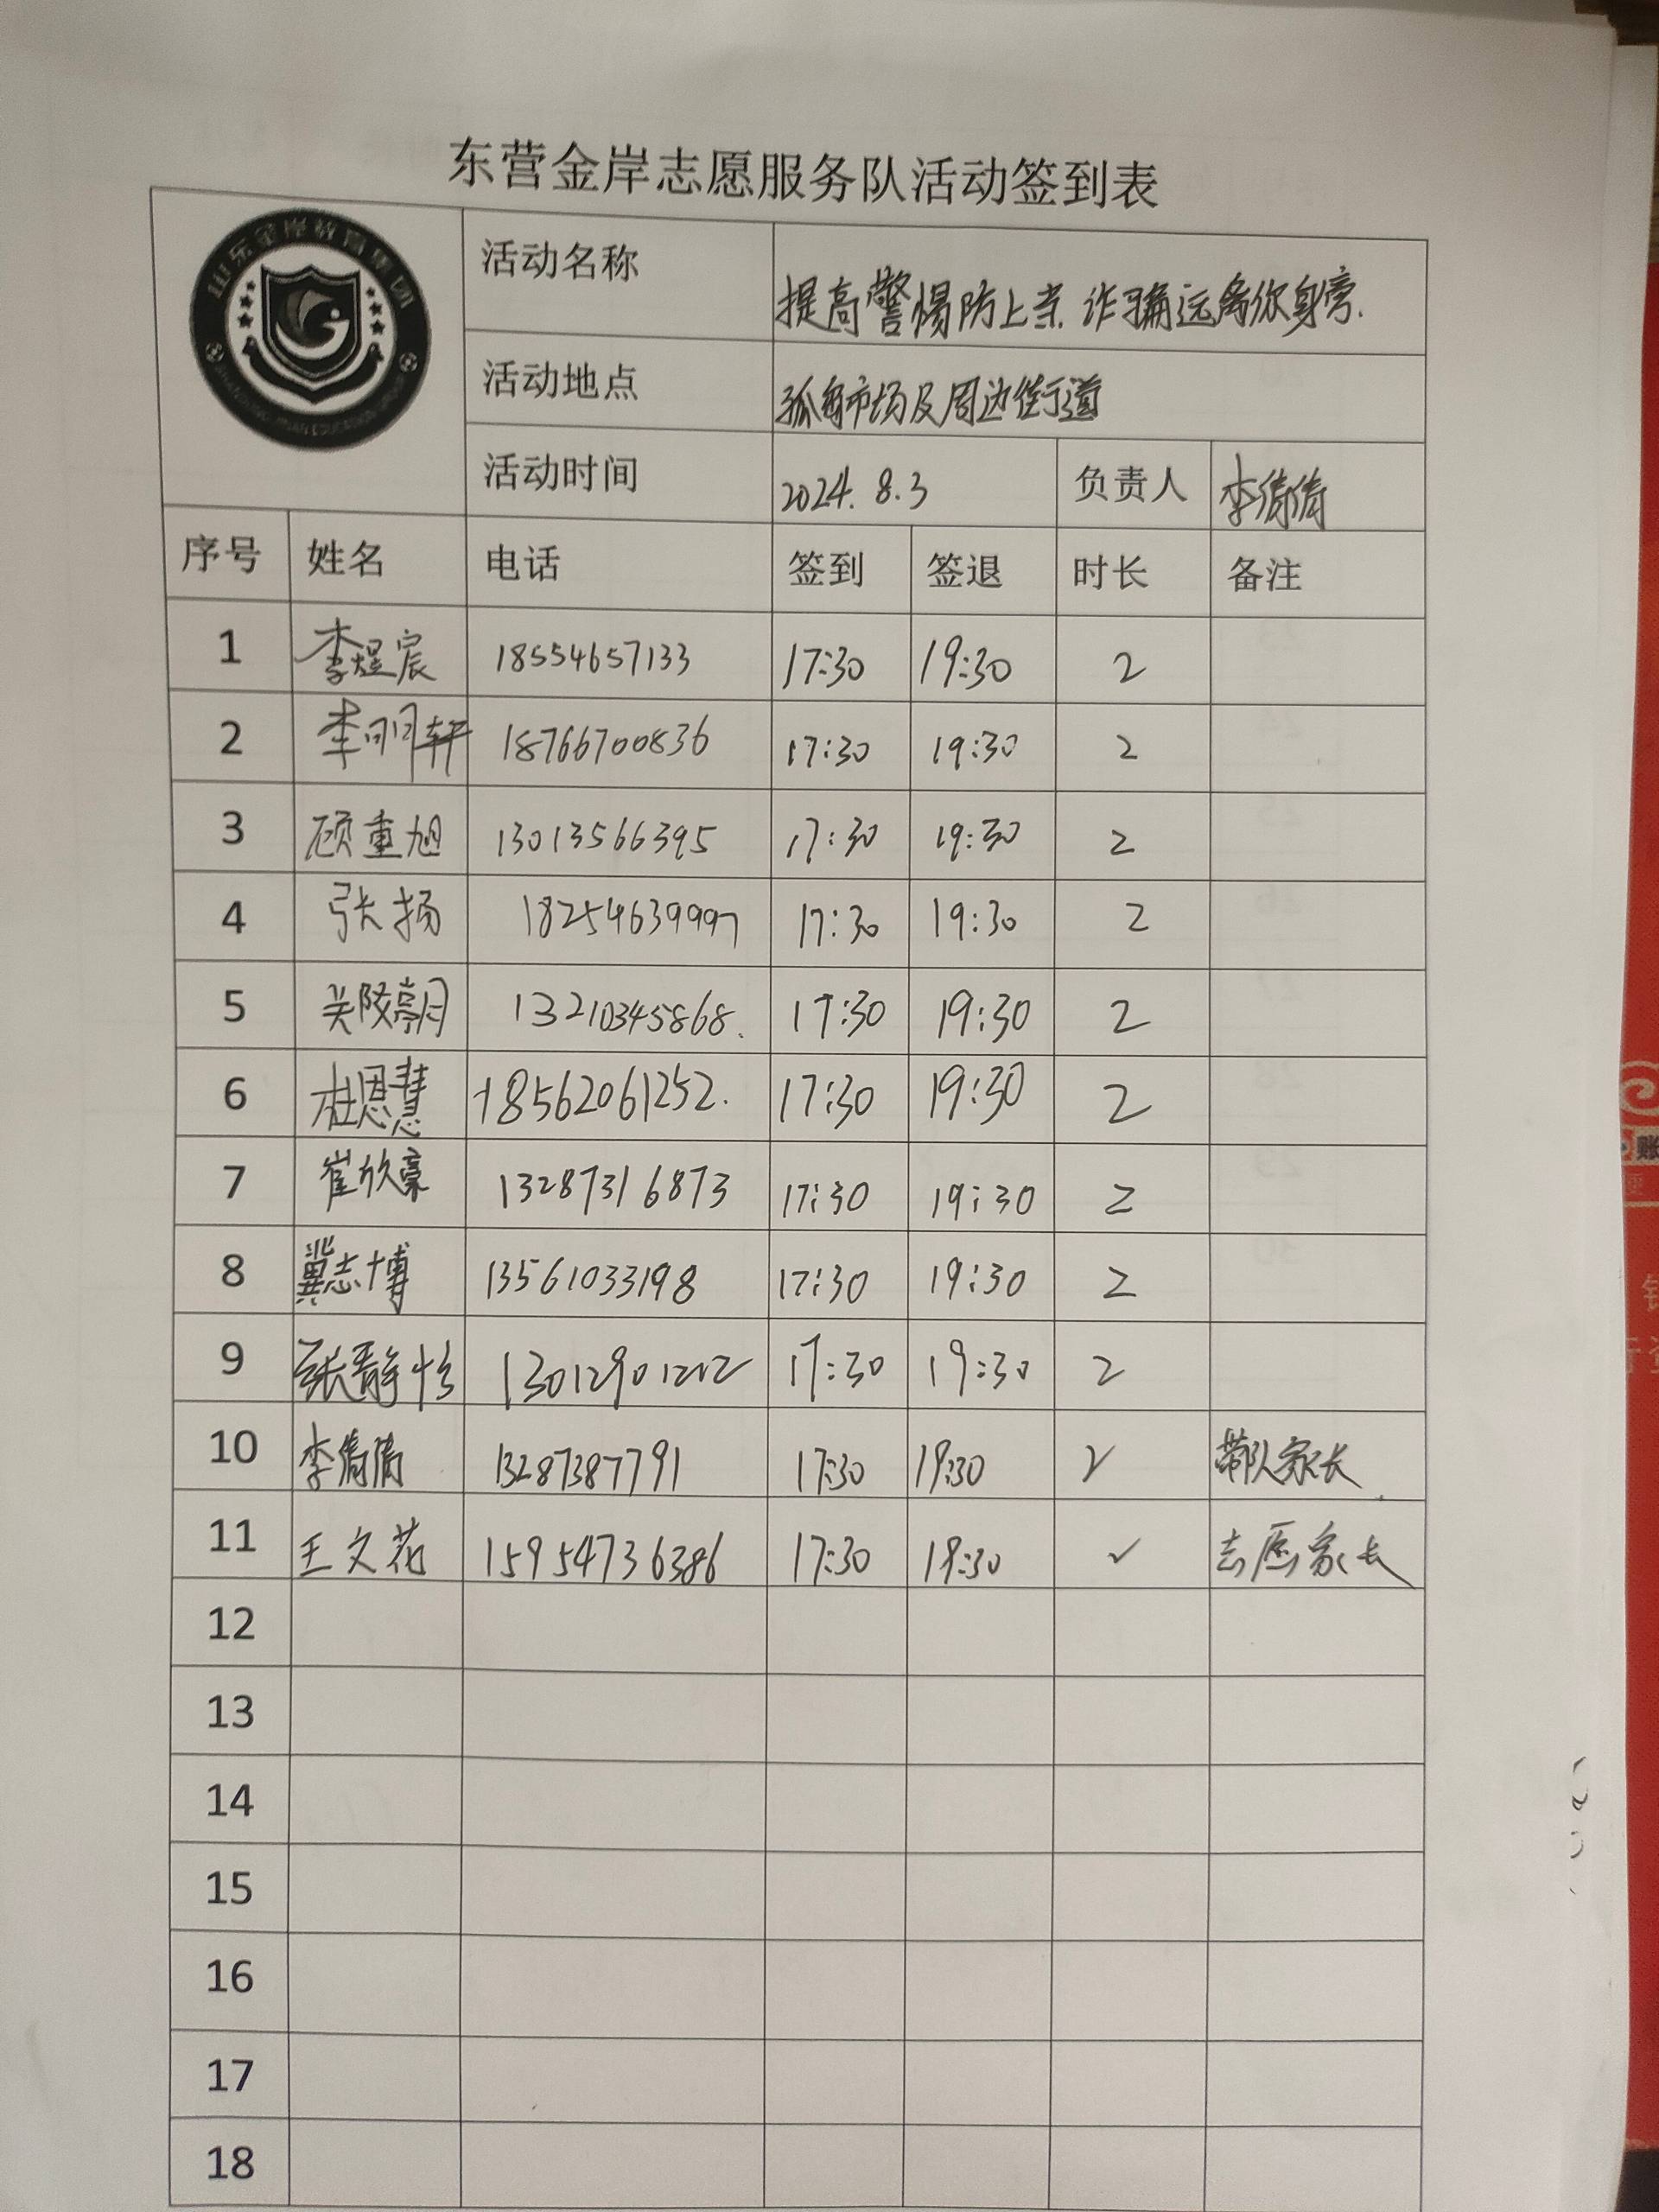 东营金岸志愿服务队活动签到表
山东金岸教育集团
活动名称 提高警惕防上当 诈骗远离你身旁.
活动地点 孤角市场及周边街道
活动时间 2024.8.3 负责人 李倩倩
序号 姓名 电话 签到 签退 时长 备注
1 李煜宸 18554657133 17:30 19:30 2
2 李明轩 18766700836 17:30 19:30 2
3 顾重旭 13013566395 17:30 19:30 2
4 张扬 18254639997 17:30 19:30 2
5 13210345868. 17:30 19:30 2
6 杜恩慧 18562061252. 17:30 19:30 2
7 崔欣豪 13287316873 17:30 19:30 2
8 冀志博 13561033198 17:30 19:30 2
9 张静怡 13012901202 17:30 19:30 2
10 李倩倩 13287387791 17:30 19:30 2 带队家长
11 王文花 15954736386 17:30 19:30 ✓ 志愿家长
12
13
14
15
16
17
18
账